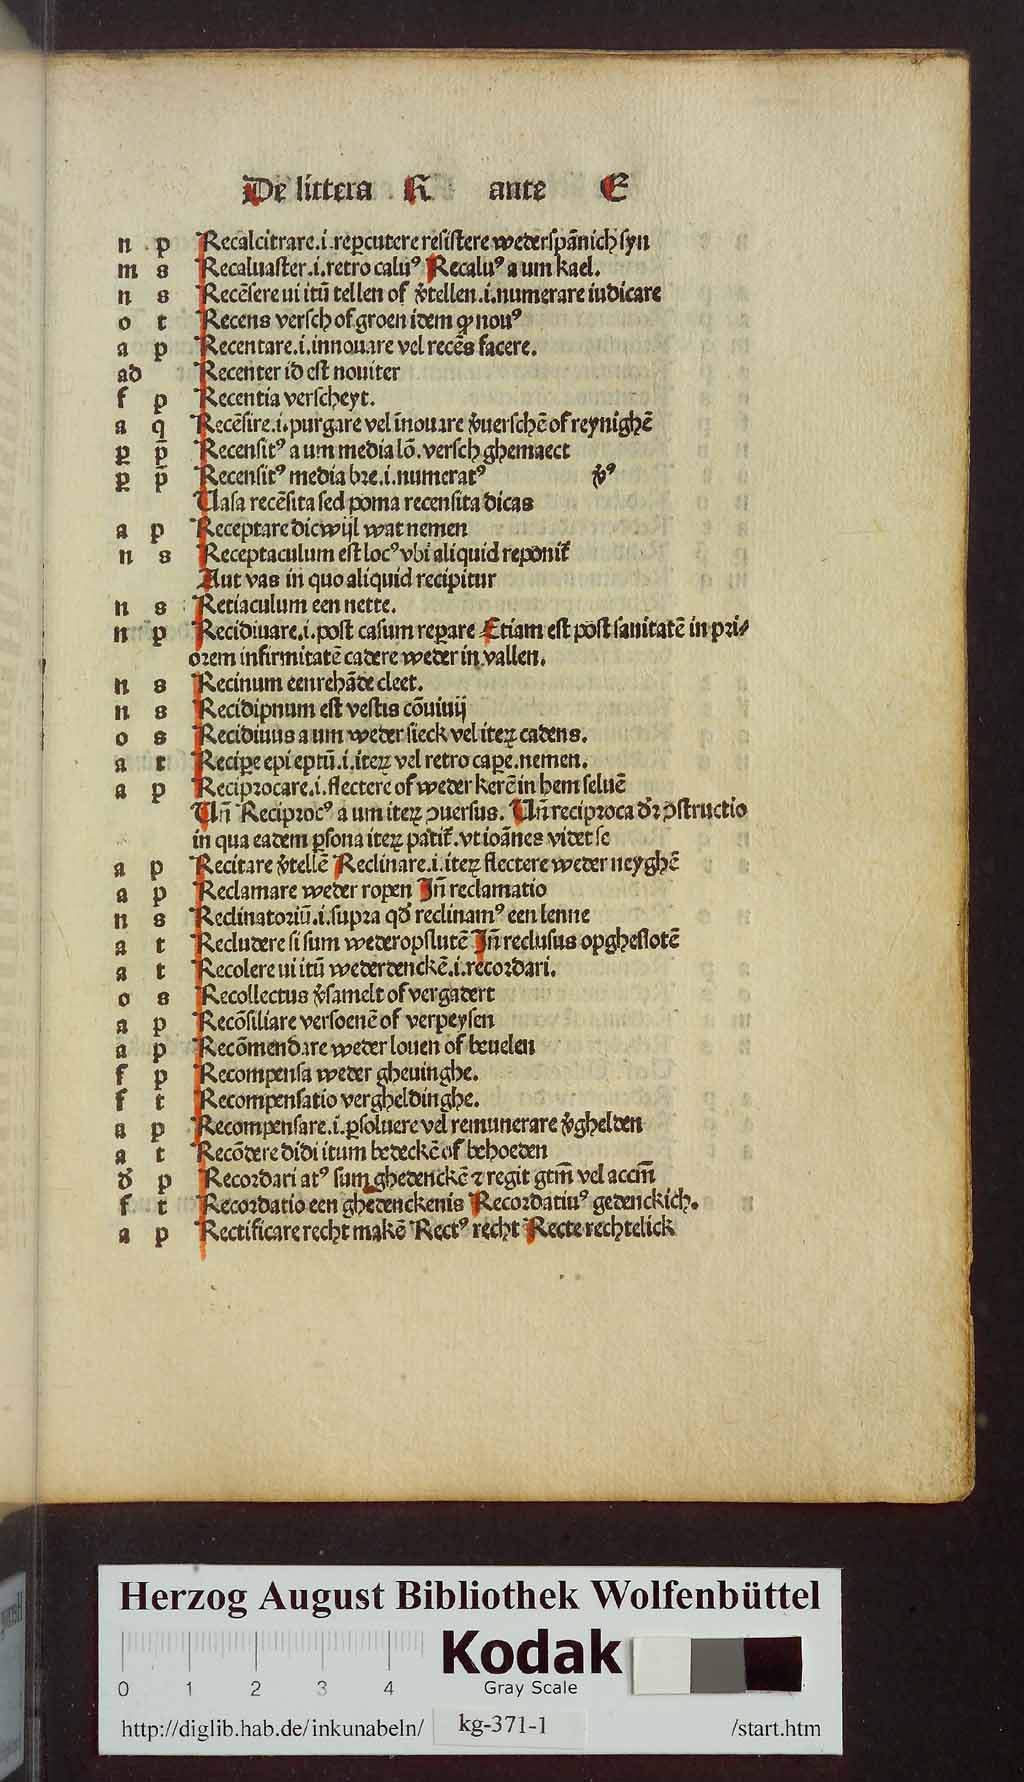 De littera R ante E
n p Recalcitrare.i.reꝑcutere resistere wederspānich syn
m s Recaluaster.i.retro caluꝰ Recaluꝰ a um kael.
n s Recēsere ui itū tellen of v̓tellen.i.numerare iudicare
o t Recens versch of groen idem qđ nouꝰ
a p Recentare.i.innouare vel recēs facere.
ad Recenter id est nouiter
f p Recentia verscheyt.
a q Recēsire.i.purgare vel īnouare v̓uerschē of reynighē
ꝑ p̄ Recensitꝰ a um media lō. versch ghemaect
ꝑ p̄ Recensitꝰ media bre.i.numeratꝰ v̓ꝰ
Uasa recēsita sed poma recensita dicas
a p Receptare dicwijl wat nemen
n s Receptaculum est locꝰ vbi aliquid reponit᷑
Aut vas in quo aliquid recipitur
n s Retiaculum een nette.
n p Recidiuare.i.post casum reꝑare Etiam est post sanitatē in pri⸗
orem infirmitatē cadere weder in vallen.
n s Recinum eenrehāde cleet.
n s Recidipnum est vestis cōuiuij
o s Recidiuus a um weder sieck vel iteꝝ cadens.
a t Reciꝑe epi eptū.i.iteꝝ vel retro caꝑe.nemen.
a p Reciprocare.i.flectere of weder kerē in hem seluē
Un̄ Reciprocꝰ a um iteꝝ ꝯuersus. Un̄ reciproca dr̄ ꝯstructio
in qua eadem ꝑsona iteꝝ patit᷑.vt ioānes videt se
a p Recitare v̓tellē Reclinare.i.iteꝝ flectere weder neyghē
a p Reclamare weder ropen In̄ reclamatio
n s Reclinatoriū.i.supra qđ reclinamꝰ een lenne
a t Recludere si sum wederopslutē In̄ reclusus opgheslotē
a t Recolere ui itū wederdenckē.i.recordari.
o s Recollectus v̓samelt of vergadert
a p Recōsiliare versoenē of verpeysen
a p Recōmendare weder louen of beuelen
f p Recompensa weder gheuinghe.
f t Recompensatio vergheldinghe.
a p Recompensare.i.ꝑsoluere vel remunerare v̓ghelden
a t Recōdere didi itum bedeckē of behoeden
đ p Recordari atꝰ sum ghedenckē ⁊ regit gtm̄ vel accm̄
f t Recordatio een ghedenckenis Recordatiuꝰ gedenckich.
a p Rectificare recht makē Rectꝰ recht Recte rechtelick
Herzog August Bibliothek Wolfenbüttel
0 1 2 3 4
Kodak
Gray Scale
http://diglib.hab.de/inkunabeln/ kg-371-1 /start.htm